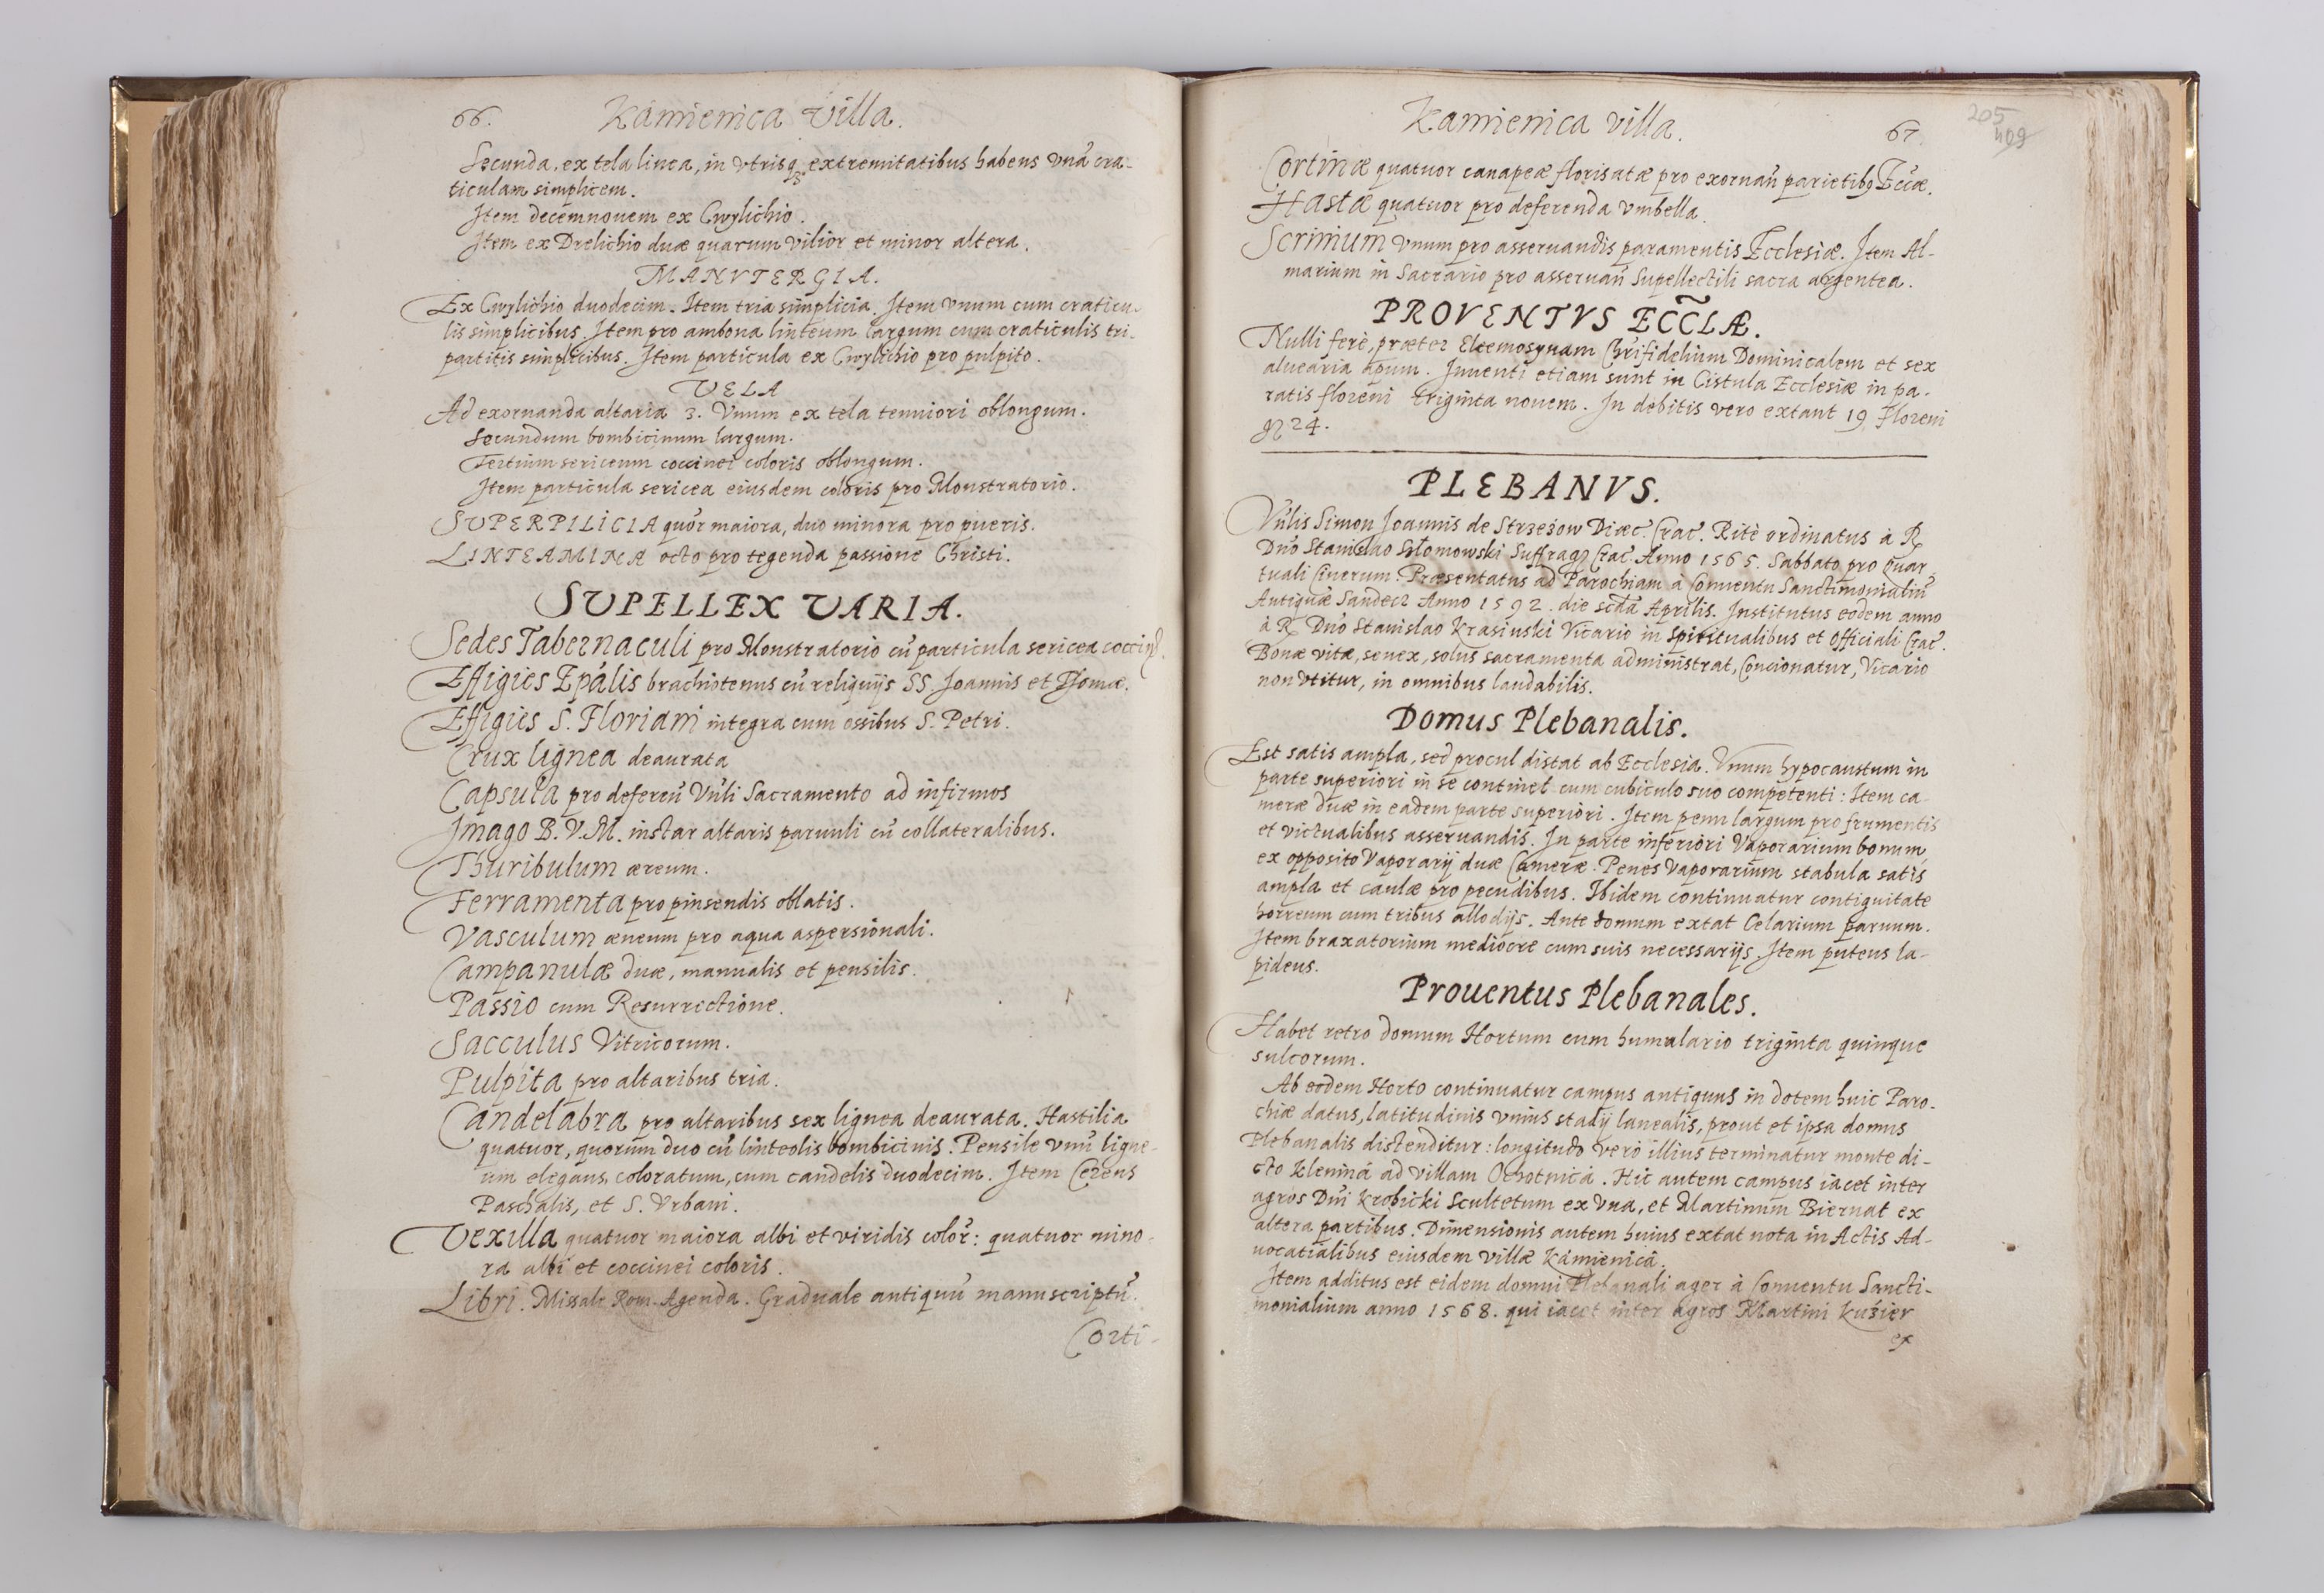 66. Kamienica Villa.
Secunda, ex tela linea, in vtrisq3 extremitatibus habens vnã cra-
ticulam simplicem.
Item decemnouem ex Cwylichio.
Item ex Drelichio duæ quarum vilior et minor altera.
MANVTERGIA.
Ex Cwylichio duodecim. Item tria simplicia. Item vnum cum craticu-
lis simplicibus. Item pro ambona linteum largum cum craticulis tri-
partitis simplicibus. Item particula ex Cwylichio pro pulpito.
VELA
Ad exornanda altaria 3. Vnum ex tela tenuiori oblongum.
Secundum bombicinum largum.
Tertium sericeum coccinei coloris oblongum.
Item particula sericea eiusdem coloris pro Monstratorio.
SVPERPILICIA quõr maiora, duo minora pro pueris.
LINTEAMINA octo pro tegenda passione Christi.
SVPELLEX VARIA.
Sedes Tabernaculi pro Monstratorio cũ particula sericea
Effigies Epãlis brachiotenus cũ reliquijs SS. Joannis et
Effigies S. Floriani integra cum ossibus S. Petri.
Crux lignea deaurata
Capsula pro Vñli Sacramento ad infirmos
Imago B.V.M. instar altaris paruuli cũ collateralibus.
Thuribulum æreum.
Ferramenta pro pinsendis oblatis.
Vasculum æneum pro aqua aspersionali.
Campanulæ duæ, manualis et pensilis.
Passio cum Resurrectione.
Sacculus Vitricorum.
Pulpita pro altaribus tria.
Candelabra pro altaribus sex lignea deaurata. Hastilia
quatuor, quorum duo cũ linteolis bombicinis. Pensile vnũ ligne-
um elegans, coloratum, cum candelis duodecim. Item Cereus
Paschalis, et S. Vrbani.
Vexilla quatuor maiora albi et viridis colõr: quatuor mino-
ra albi et coccinei coloris.
Libri. Missale Rom. Agenda. Graduale antiquũ manuscriptũ.
Corti-
Kamienica villa. 67.
205
409
Cortinæ quatuor canapeæ florisatæ pro exornañ parietibq Ecc̃æ.
Hastæ quatuor pro deferenda vmbella.
Scrinium vnum pro asseruandis paramentis Ecclesiæ. Item Al-
marium in Sacrario pro asseruañ Supellectili sacra argentea.
PROVENTVS ECC̃LÆ.
Nulli ferè, præter Eleemosynam Chrifidelium Dominicalem et sex
aluearia apum. Inuenti etiam sunt in Cistula Ecclesiæ in pa-
ratis floreni triginta nouem. In debitis vero extant 19 Floreni
24.
PLEBANVS.
Vñlis Simon Joannis de Strzeżow Diæc. Crac. Ritè ordinatus à R.
Dño Stanislao Słomowski Suffrag. Crac. Anno 1565. Sabbato pro Quar-
tuali Cinerum. Præsentatus ad Parochiam à Conuentu Sanctimonialiũ
Antiquæ Sandecz Anno 1592. die scda Aprilis. Institutus eodem anno
à R. Dño Stanislao Krasinski Vicario in spiritualibus et Officiali Crac.
Bonæ vitæ, senex, solus sacramenta administrat, Concionatur, Vicario
non vtitur, in omnibus laudabilis.
Domus Plebanalis.
Est satis ampla, sed procul distat ab Ecclesia. Vnum hypocaustum in
parte superiori in se continet cum cubiculo suo competenti: Item ca-
meræ duæ in eadem parte superiori. Item penu largum pro frumentis
et victualibus asseruandis. In parte inferiori Vaporarium bonum,
ex opposito Vaporarij duæ Cameræ. Penes Vaporarium stabula satis
ampla et caulæ pro pecudibus. Ibidem continuatur contiguitate
horreum cum tribus allodijs. Ante domum extat Celarium paruum.
Item braxatorium mediocre cum suis necessarijs. Item puteus la-
pideus.
Prouentus Plebanales.
Habet retro domum Hortum cum humulario triginta quinque
sulcorum.
Ab eodem Horto continuatur campus antiquus in dotem huic Paro-
chiæ datus, latitudinis vnius stadij lanealis, prout et ipsa domus
Plebanalis distenditur: longitudo vero illius terminatur monte di-
cto Klenina ad villam Ochotnica. Hic autem campus iacet inter
agros Dñi Krobicki Scultetum ex Vna, et Martinum Biernat ex
altera partibus. Dimensionis autem huius extat nota in Actis Ad-
uocatialibus eiusdem villæ Kamienica.
Item additus est eidem domui Plebanali ager à Conuentu Sancti-
monialium anno 1568. qui iacet inter agros Martini Kuśier
ex